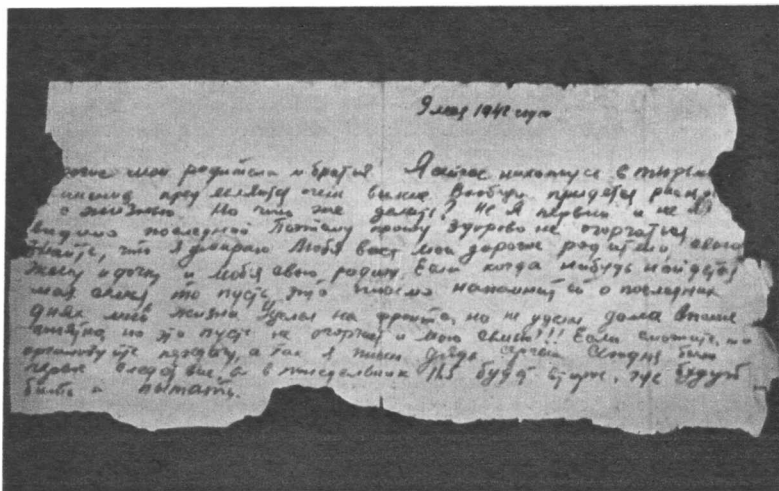 9 мая 1942 года
рогие мои родители и братья. Я сейчас нахожусь в тюрьме
предъявляется очень высокое. Вообще придется
с жизнью. Но что же делать? Не я первый и не я
видимо последний. Поэтому прошу здорово не огорчаться
Знайте, что я умираю любя вас, мои дорогие родители, свою
жену и дочку и любя свою родину. Если когда нибудь найдется
моя то пусть это письмо напомнит ей о последних
днях моей жизни. Уцелел на фронте, но не уцелел дома.
но это пусть не огорчает и мою семью!!! Если сможете, то
организуйте передачу, а так я Сегодня было
первое следствие, а в понедельник 11.5 будет второе, где будут
бить и пытать.